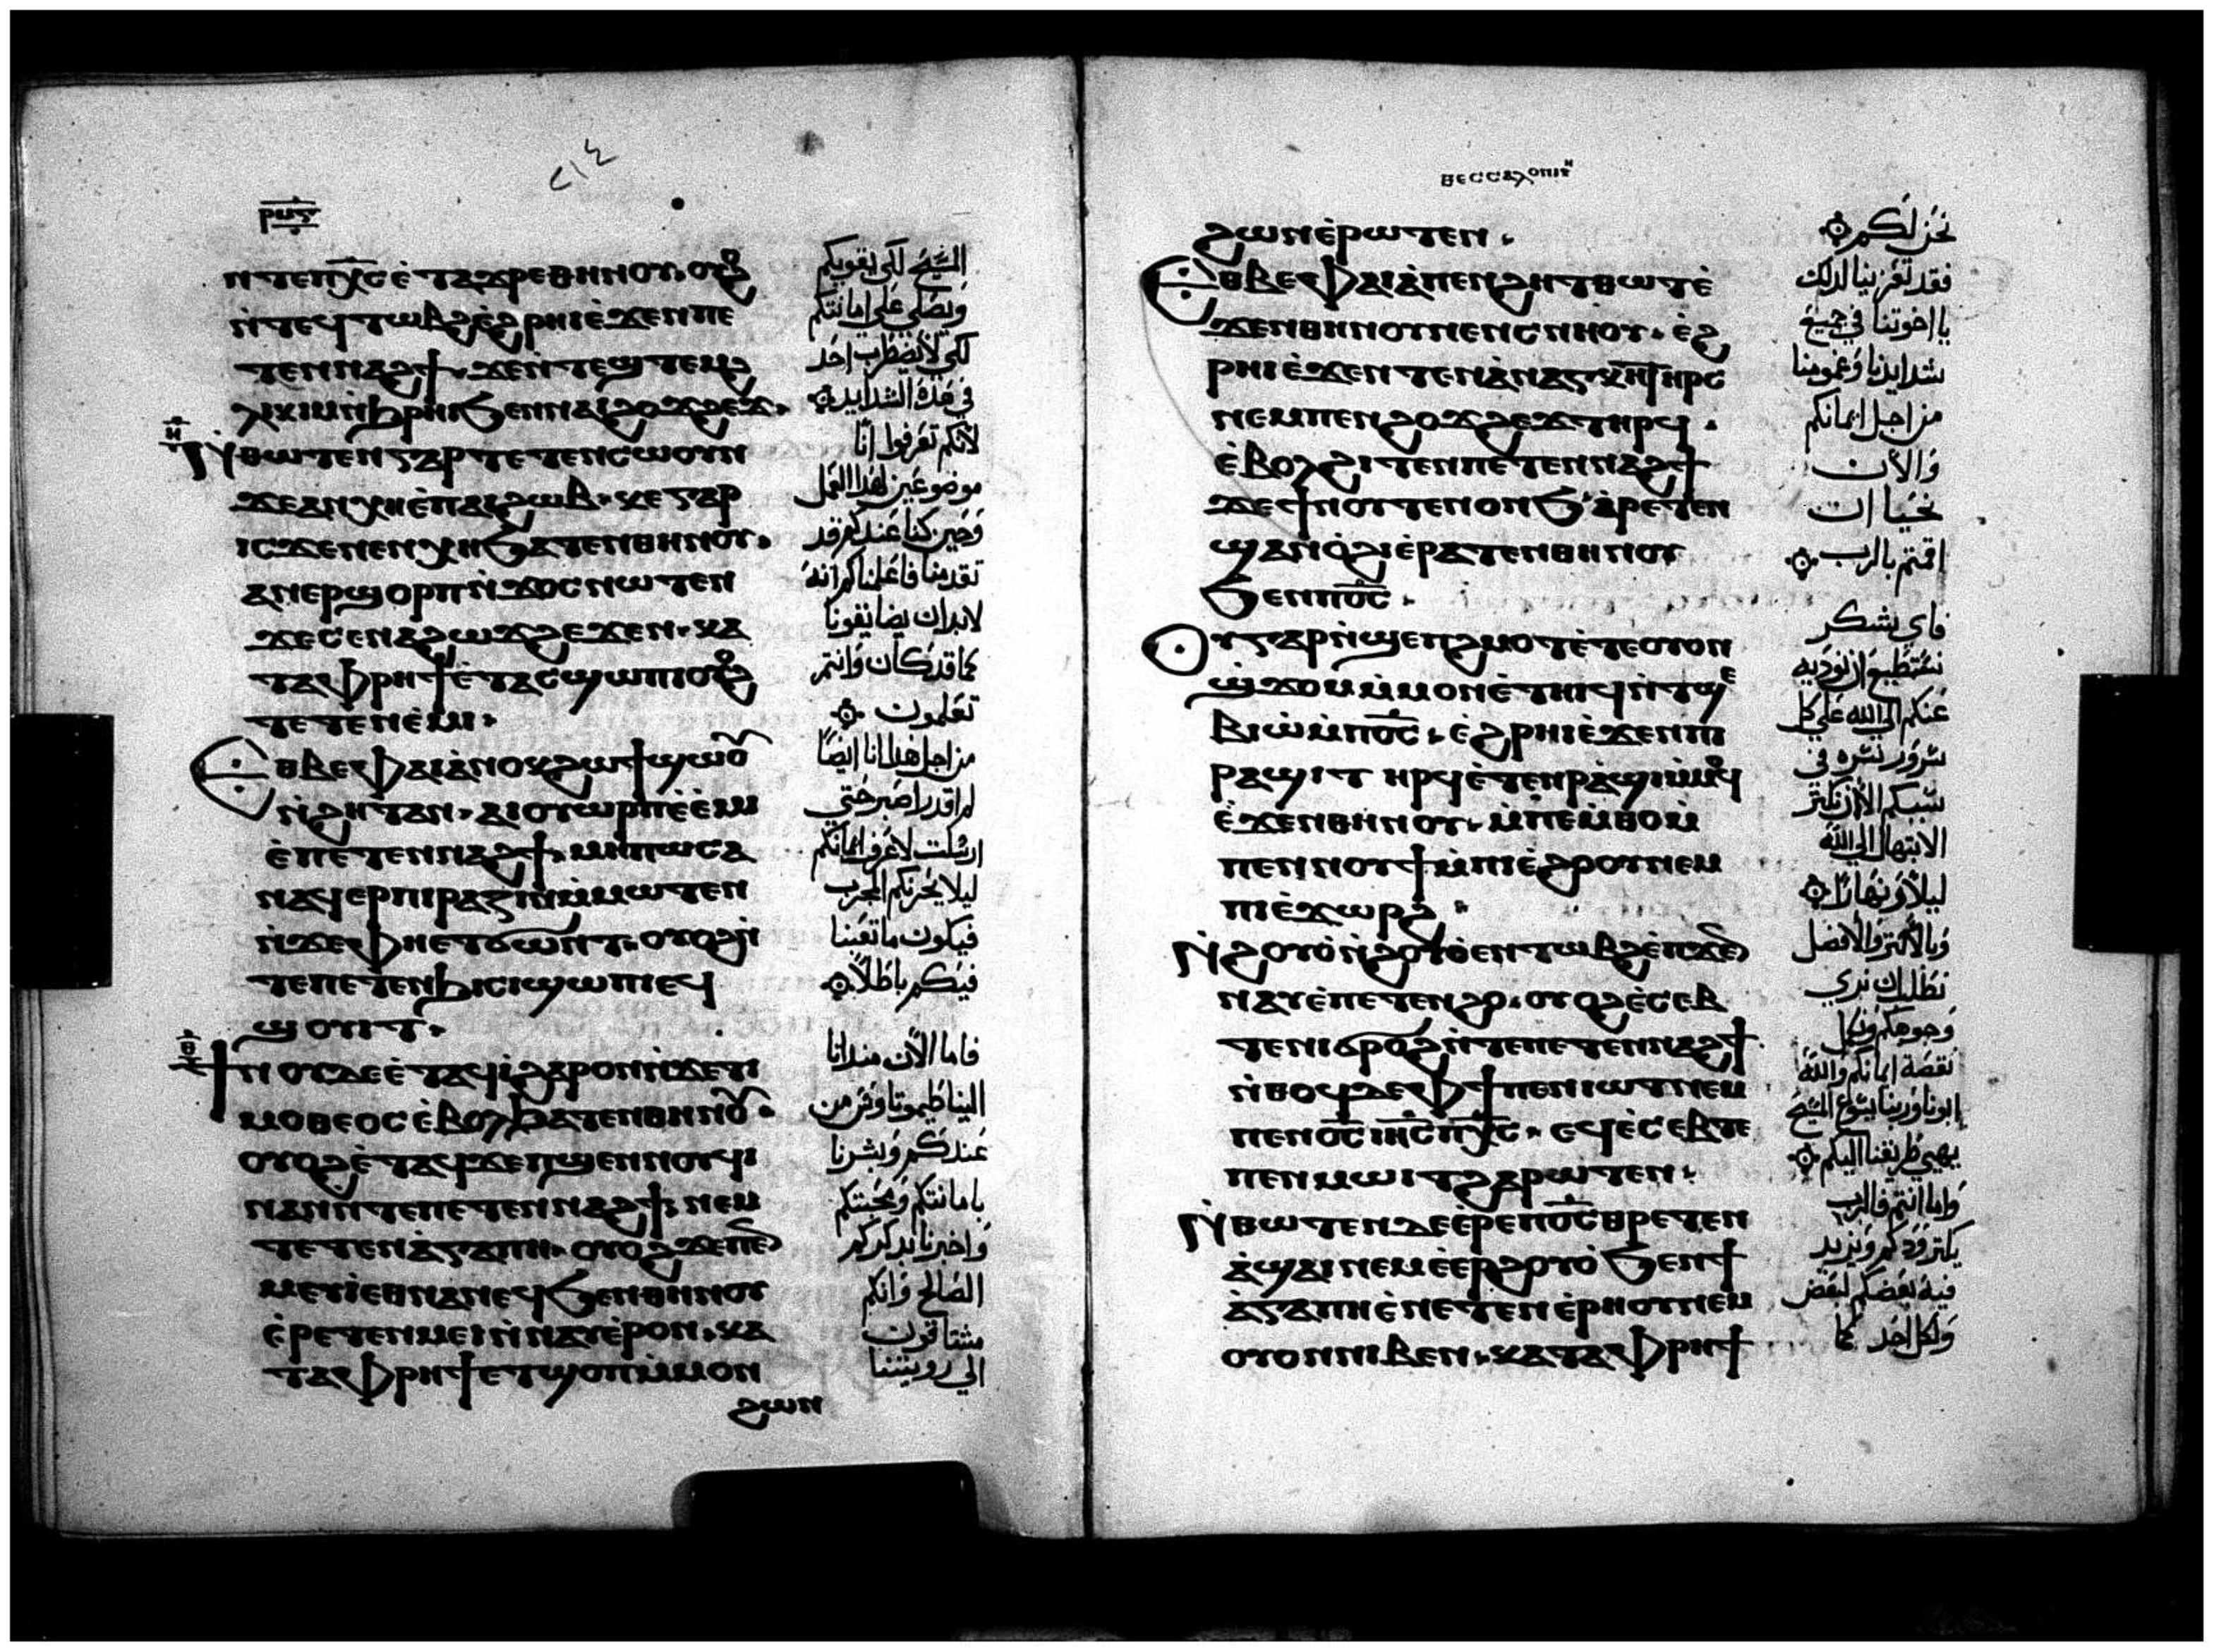 ⲣⲙⲋ
٢١٤
ⲛⲧⲉⲡⲭ̅ⲥ̅ ⲉ̀ⲧⲁϫⲣⲉⲑⲏⲛⲟⲩ ⲟⲩⲟϩ
ⲛ̀ⲧⲉϥⲧⲱⲃϩ ⲉ̀ϩⲣⲏⲓ ⲉ̀ϫⲉⲛ ⲡⲉ
ⲧⲉⲛⲛⲁϩϯ ϫⲉⲛ̀ⲧⲉϣⲧⲉⲙϩ
ⲗⲓⲕⲓⲙ ⲛ̀ϧⲣⲏⲓ ϧⲉⲛ ⲛⲁⲓϩⲟϫϩⲉϫ
ⲏ
ⲛ̀ⲑⲱⲧⲉⲛ ⲅⲁⲣ ⲧⲉⲧⲉⲛⲥⲱⲟⲩⲛ
ϫⲉⲁⲛⲭⲏ ⲉ̀ⲡⲁⲓϩⲱⲃ ⲕⲉ ⲅⲁⲣ
ⲓⲥϫⲉⲛ ⲉⲛⲭⲏ ϧⲁⲧⲉⲛⲑⲏⲛⲟⲩ
ⲁⲛⲉⲣϣⲟⲣⲡ ⲛ̀ϫⲟⲥ ⲛⲱⲧⲉⲛ
ϫⲉⲥⲉⲛⲁϩⲱϫϩⲉϫⲉⲛ ⲕⲁ
ⲧⲁ ⲫⲣⲏϯ ⲉ̀ⲧⲁⲥϣⲱⲡⲓ ⲟⲩⲟϩ
ⲧⲉⲧⲉⲛⲉ̀ⲙⲓ
ⲉⲑⲃⲉ ⲫⲁⲓ ⲁ̀ⲛⲟⲕ ϩⲱ ϯϣⲱⲟⲩ
ⲛ̀ϩⲏⲧ ⲁⲛ ⲁⲓⲟⲩⲱⲣⲡ ⲉ̀ⲉ̀ⲙⲓ
ⲉ̀ⲡⲉⲧⲉⲛⲛⲁϩϯ ⲙⲏⲡⲱⲥ ⲁ
ⲛⲁϥⲉⲣⲡⲓⲣⲁⲍⲓⲛ ⲙ̀ⲙⲱⲧⲉⲛ
ⲛ̀ϫⲉ ⲫⲏⲉⲧϭⲱⲛⲧ ⲟⲩⲟϩ ⲛ̀
ⲧⲉ ⲡⲉⲧⲉⲛϧⲓⲥⲓ ϣⲱⲡⲓ ⲉϥ
ϣⲟⲩⲓⲧ
ⲑ
ϯⲛⲟⲩ ⲇⲉ ⲉ̀ⲧⲁϥⲓ̀ ϩⲁⲣⲟⲛ ⲛ̀ϫⲉ ⲧⲓ
ⲙⲟⲑⲉⲟⲥ ⲉ̀ⲃⲟⲗ ϧⲁⲧⲉⲛⲑⲏⲛⲟⲩ
ⲟⲩⲟϩ ⲉ̀ⲧⲁϥϫⲉⲡϣⲉⲛⲛⲟⲩϥⲓ
ⲛⲁⲛ ⲛⲧⲉ ⲡⲉⲧⲉⲛⲛⲁϩϯ ⲛⲉⲙ
ⲧⲉⲧⲉⲛⲁ̀ⲅⲁⲡⲏ ⲟⲩⲟϩ ϫⲉ ⲡⲉⲛ
ⲙⲉⲩⲓ̀ ⲉⲑⲛⲁⲛⲉϥ ϧⲉⲛ ⲑⲏⲛⲟⲩ
ⲉ̀ⲣⲉⲧⲉⲛⲙⲉⲓ ⲛ̀ⲛⲁⲩ ⲉ̀ⲣⲟⲛ ⲕⲁ
ⲧⲁ ⲫⲣⲏϯ ⲉⲧϣⲟⲡ ⲙ̀ⲙⲟⲛ
ϩⲱⲛ
المسيح لكي يقويكم
ويصلي علي امانتكم
لكي لا يضطرب احد
في هذه الشدايد
لانكم تعرفوا انا
موضوعين لهذا العمل
وحين كنا عندكم قد
تقدمنا فاعلمناكم انه
لابد ان يضايقونا
كما قد كان وانتم
تعلمون
من اجل هذا انا ايضا
لم اقدر اصبر حتي
ارسلت لاعرف ايمانكم
ليلا يجربكم المجرب
فيكون ما تعبنا
فيكم باطلا
فاما الان منذ اتا
الينا طيموتاوس من
عندكم وبشرنا
بامانتكم ومحبتكم
واخبرنا بذكركم
الصالح وانكم
مشتاقون
الي رويتنا
ⲑⲉⲥⲥⲁⲗⲟⲛⲓⲕⲏ
ϩⲱⲛ ⲉ̀ⲣⲱⲧⲉⲛ
ⲉⲑⲃⲉ ⲫⲁⲓ ⲁ̀ ⲡⲉⲛϩⲏⲧ ⲑⲱⲧ ⲉ̀
ϫⲉⲛ ⲑⲏⲛⲟⲩ ⲛⲉⲛⲥⲛⲏⲟⲩ ⲉ̀ϩ
ⲣⲏⲓ ⲉ̀ϫⲉⲛ ⲧⲉⲛⲁ̀ⲛⲁⲅⲕⲏ ⲧⲏⲣⲥ
ⲛⲉⲙ ⲡⲉⲛϩⲟϫϩⲉϫ ⲧⲏⲣϥ
ⲉ̀ⲃⲟⲗ ϩⲓⲧⲉⲛ ⲡⲉⲧⲉⲛⲛⲁϩϯ
ϫⲉ ϯⲛⲟⲩ ⲧⲉⲛⲟⲛϧ ⲁ̀ⲣⲉⲧⲉⲛ
ϣⲁⲛⲟ̀ϩⲓ ⲉ̀ⲣⲁⲧⲉⲛⲑⲏⲛⲟⲩ
ϧⲉⲛ ⲡⲟ̅ⲥ̅
ⲟⲩ ⲅⲁⲣ ⲛ̀ϣⲉⲡϩⲙⲟⲧ ⲉ̀ⲧⲉⲟⲩⲟⲛ
ϣ̀ϫⲟⲙ ⲙ̀ⲙⲟⲛ ⲉ̀ⲧⲏⲓϥ ⲛ̀ⲧϣⲉ
ⲃⲓⲱ̀ ⲙ̀ⲡⲟ̅ⲥ̅ ⲉ̀ϩⲣⲏⲓ ⲉ̀ϫⲉⲛ ⲡⲓ
ⲣⲁϣⲓ ⲧⲏⲣϥ ⲉ̀ⲧⲉⲛⲣⲁϣⲓ ⲙ̀ⲙⲟϥ
ⲉ̀ϫⲉⲛ ⲑⲏⲛⲟⲩ ⲙ̀ⲡⲉⲙ̀ⲑⲟ ⲙ̀
ⲡⲉⲛⲛⲟⲩϯ ⲙ̀ⲡⲓⲉ̀ϩⲟⲟⲩ ⲛⲉⲙ
ⲡⲓⲉ̀ϫⲱⲣϩ
ⲛ̀ϩⲟⲩⲟ̀ ⲛ̀ϩⲟⲩⲟ̀ ⲉⲛⲧⲱⲃϩ ⲉ̀ⲡϫⲉⲛ
ⲛⲁⲩ ⲉ̀ⲡⲉⲧⲉⲛϩⲟ ⲟⲩⲟϩ ⲉ̀ⲥⲉⲃ
ⲧⲉ ⲛⲓϭⲣⲟϩ ⲛ̀ⲧⲉ ⲡⲉⲧⲉⲛⲛⲁϩϯ
ⲛ̀ⲑⲟϥ ⲇⲉ ⲫϯ ⲡⲉⲛⲓⲱⲧ ⲛⲉⲙ
ⲡⲉⲛⲟ̅ⲥ̅ ⲓⲏ̅ⲥ̅ ⲡⲭ̅ⲥ̅ ⲉϥⲉ̀ⲥⲉⲃⲧⲉ
ⲡⲉⲛⲙⲱⲓⲧ ϩⲁⲣⲱⲧⲉⲛ
ⲛ̀ⲑⲱⲧⲉⲛ ⲇⲉ ⲉ̀ⲣⲉ ⲡⲟ̅ⲥ̅ ⲑⲣⲉⲧⲉⲛ
ⲁ̀ϣⲁⲓ ⲛⲉⲙ ⲉ̀ⲉⲣϩⲟⲩⲟ̀ ϧⲉⲛ ϯ
ⲁ̀ⲅⲁⲡⲏ ⲉ̀ⲛⲉⲧⲉⲛⲉ̀ⲣⲏⲟⲩ ⲛⲉⲙ
ⲟⲩⲟⲛ ⲛⲓⲃⲉⲛ ⲕⲁⲧⲁ ⲫⲣⲏϯ
نحن لكم
فقد تعزينا لذلك
يا اخوتنا في جميع
شدايدنا وغمومنا
من اجل ايمانكم
والان
نحيا ان
اقمتم بالرب
فاي شكر
نستطيع ان نوديه
عنكم الي الله علي كل
سرور نسره في
سببكم الان نكثر
الابتهال الي الله
ليلا ونهارا
وبالاكثر والافضل
نطلب ان نري
وجوهكم ونكمل
نقصة ايمانكم والله
ابونا وربنا يسوع المسيح
يهيي طريقنا اليكم
واما انتم فالرب
يكثر ودكم ويزيد
فيه بعضكم لبعض
ولكل احد كما